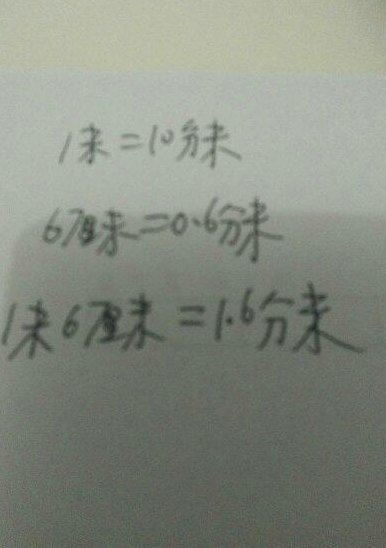 1米=10分米
6厘米=0.6分米
1米6厘米=1.6分米